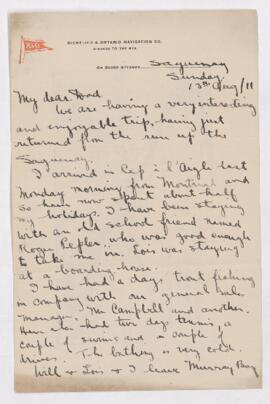 RICHELIEU & ONTARIO NAVIGATION CO.
NIAGARA TO THE SEA
ON BOARD STEAMER Saguenay
Sunday
13th Aug/11
My dear Dad
We are having a very interesting
and enjoyable trip, having just
returned from the run up the
Saguenay.
I arrived in Cap à l'Aigle last
Monday morning from Montreal and
so have now spent about half
my holidays. I have been staying
with an old school friend named
Roger Pepler, who was good enough
to take me in. Lois was staying
at a boarding-house.
I have had a day's trout fishing
in company with our general sales
manager, Mr Campbell and another.
Have also had two days tennis, a
couple of swims and a couple of
drives. The bathing is very cold.
Will & Lois & I leave Murray Bay